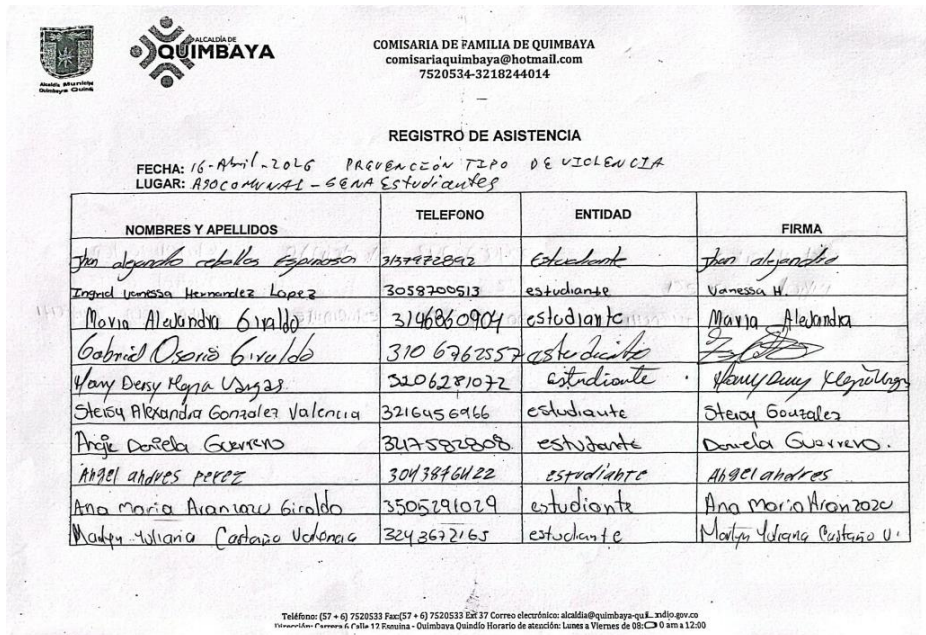 ALCALDÍA DE
QUIMBAYA
COMISARIA DE FAMILIA DE QUIMBAYA
comisariaquimbaya@hotmail.com
7520534-3218244014
REGISTRO DE ASISTENCIA
FECHA: 16-Abril-2026 PREVENCIÓN TIPO DE VIOLENCIA
LUGAR: ASOCOMUNAL - SENA Estudiantes
NOMBRES Y APELLIDOS TELEFONO ENTIDAD FIRMA
Jhon alejandro ceballos Espinosa 3137972892 Estudiante Jhon alejandro
Ingrid vanessa Hernandez Lopez 3058700513 estudiante Vanessa H.
Maria Alejandra Giraldo 3146860904 estudiante Maria Alejandra
Gabriel Osorio Giraldo 310 6762557 estudiante
Deisy Vargas 3206281072 estudiante
Steisy Alexandra Gonzalez Valencia 3216456966 estudiante Steisy Gonzalez
Angie Daniela Guerrero 3217582808 estudiante Daniela Guerrero.
Angel andres perez 3043876422 estudiante Angel andres
Ana maria Aranzazu Giraldo 3505291029 estudiante Ana Maria Aranzazu
Yuliana Castaño Valencia 3243672165 estudiante Yuliana Castaño V.
Teléfono: (57 + 6) 7520533 Fax:(57 + 6) 7520533 Ext 37 Correo electrónico: alcaldia@quimbaya-quindio.gov.co
Dirección: Carrera 6 Calle 12 Esquina - Quimbaya Quindío Horario de atención: Lunes a Viernes de 08:00 am a 12:00